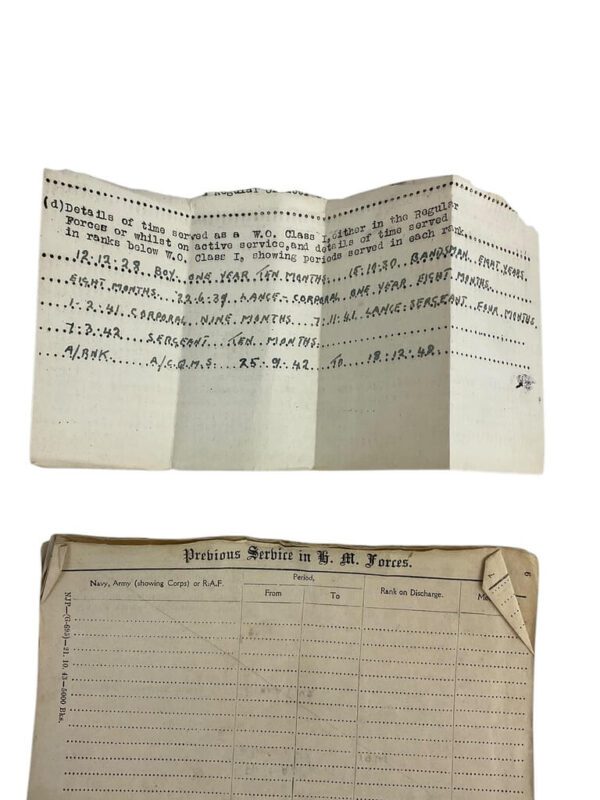 (d) Details of time served as a W.O. Class I, either in the Regular
Forces or whilst on active service, and details of time served
in ranks below W.O. Class I, showing periods served in each rank.
12.12.28 BOY. ONE YEAR TEN MONTHS. 15.10.30 BANDSMAN EIGHT YEARS.
EIGHT MONTHS. 22.6.39 LANCE-CORPORAL ONE YEAR EIGHT MONTHS.
1.2.41 CORPORAL NINE MONTHS 7.11.41 LANCE-SERGEANT FOUR MONTHS.
7.3.42 SERGEANT TEN MONTHS.
A/RNK. A/C.Q.M.S. 25.9.42 TO 18.12.42.
Previous Service in H. M. Forces.
Navy, Army (showing Corps) or R.A.F.
Period,
From
To
Rank on Discharge.
6
7
NJP—(G-685)—21. 10. 43—5000 Bks.